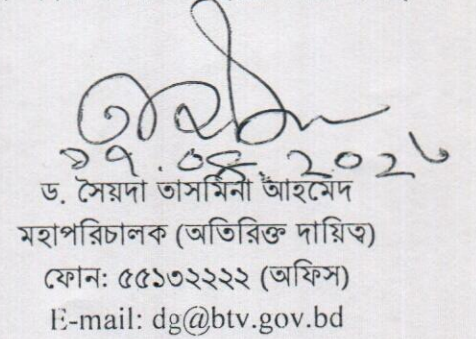 ১৭.০৪.২০২৬
ড. সৈয়দা তাসমিনা আহমেদ
মহাপরিচালক (অতিরিক্ত দায়িত্ব)
ফোন: ৫৫১৩২২২২ (অফিস)
E-mail: dg@btv.gov.bd